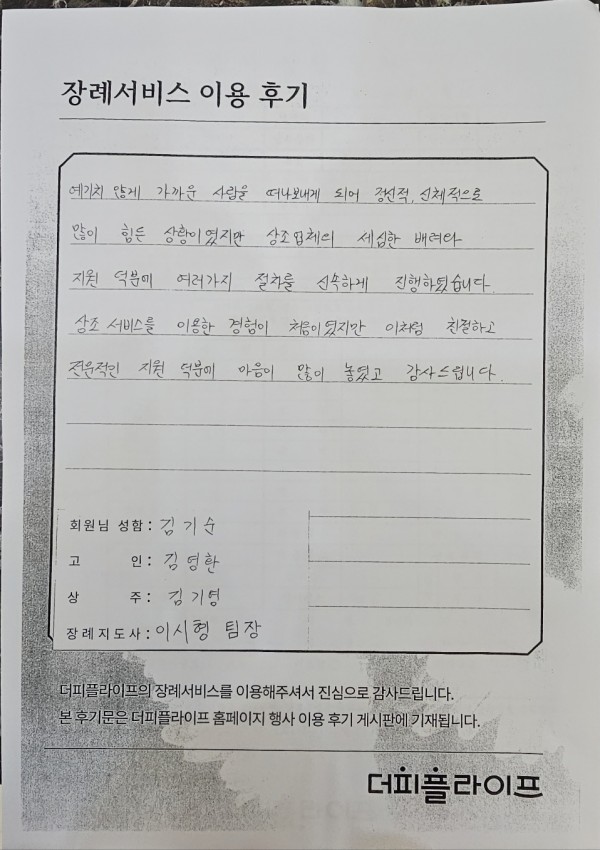 장례서비스 이용 후기
예기치 않게 가까운 사람을 떠나보내게 되어 정신적, 신체적으로
많이 힘든 상황이였지만 상조업체의 세심한 배려와
지원 덕분에 여러가지 절차를 신속하게 진행하였습니다.
상조 서비스를 이용한 경험이 처음이였지만 이처럼 친절하고
전문적인 지원 덕분에 마음이 많이 놓였고 감사드립니다.
회원님 성함 : 김기순
고 인 : 김영환
상 주 : 김기영
장례지도사 : 이시형 팀장
더피플라이프의 장례서비스를 이용해주셔서 진심으로 감사드립니다.
본 후기문은 더피플라이프 홈페이지 행사 이용 후기 게시판에 기재됩니다.
더피플라이프